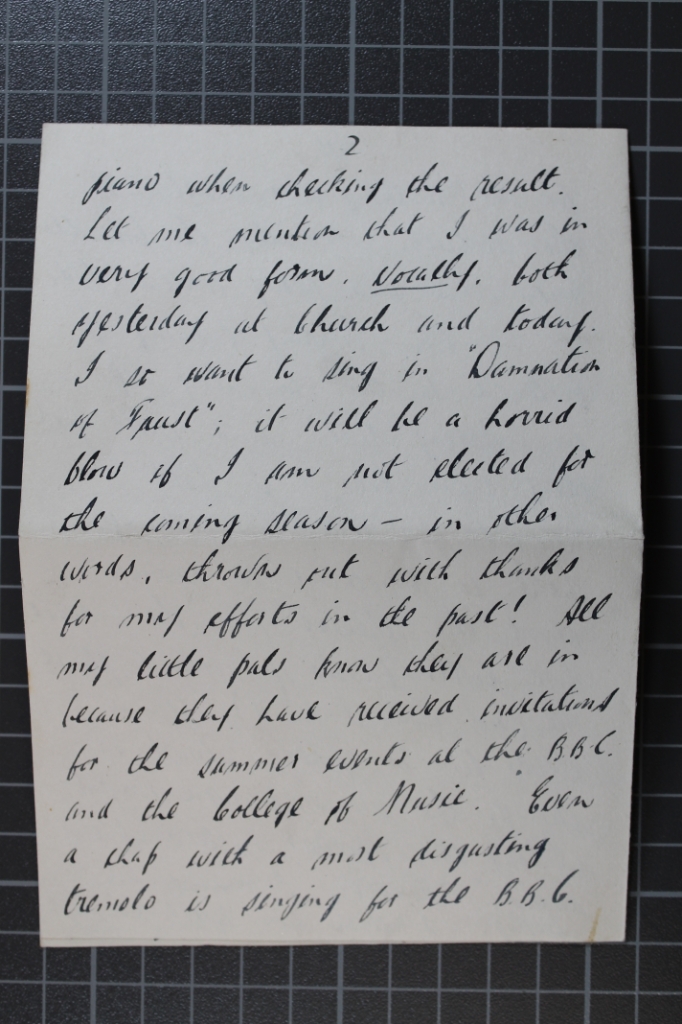 2
piano when checking the result.
Let me mention that I was in
very good form, vocally, both
yesterday at Church and today.
I so want to sing in "Damnation
of Faust"; it will be a horrid
blow if I am not elected for
the coming season – in other
words, thrown out with thanks
for my efforts in the past! All
my little pals know they are in
because they have received invitations
for the summer events at the B.B.C.
and the College of Music. Even
a chap with a most disgusting
tremolo is singing for the B.B.C.